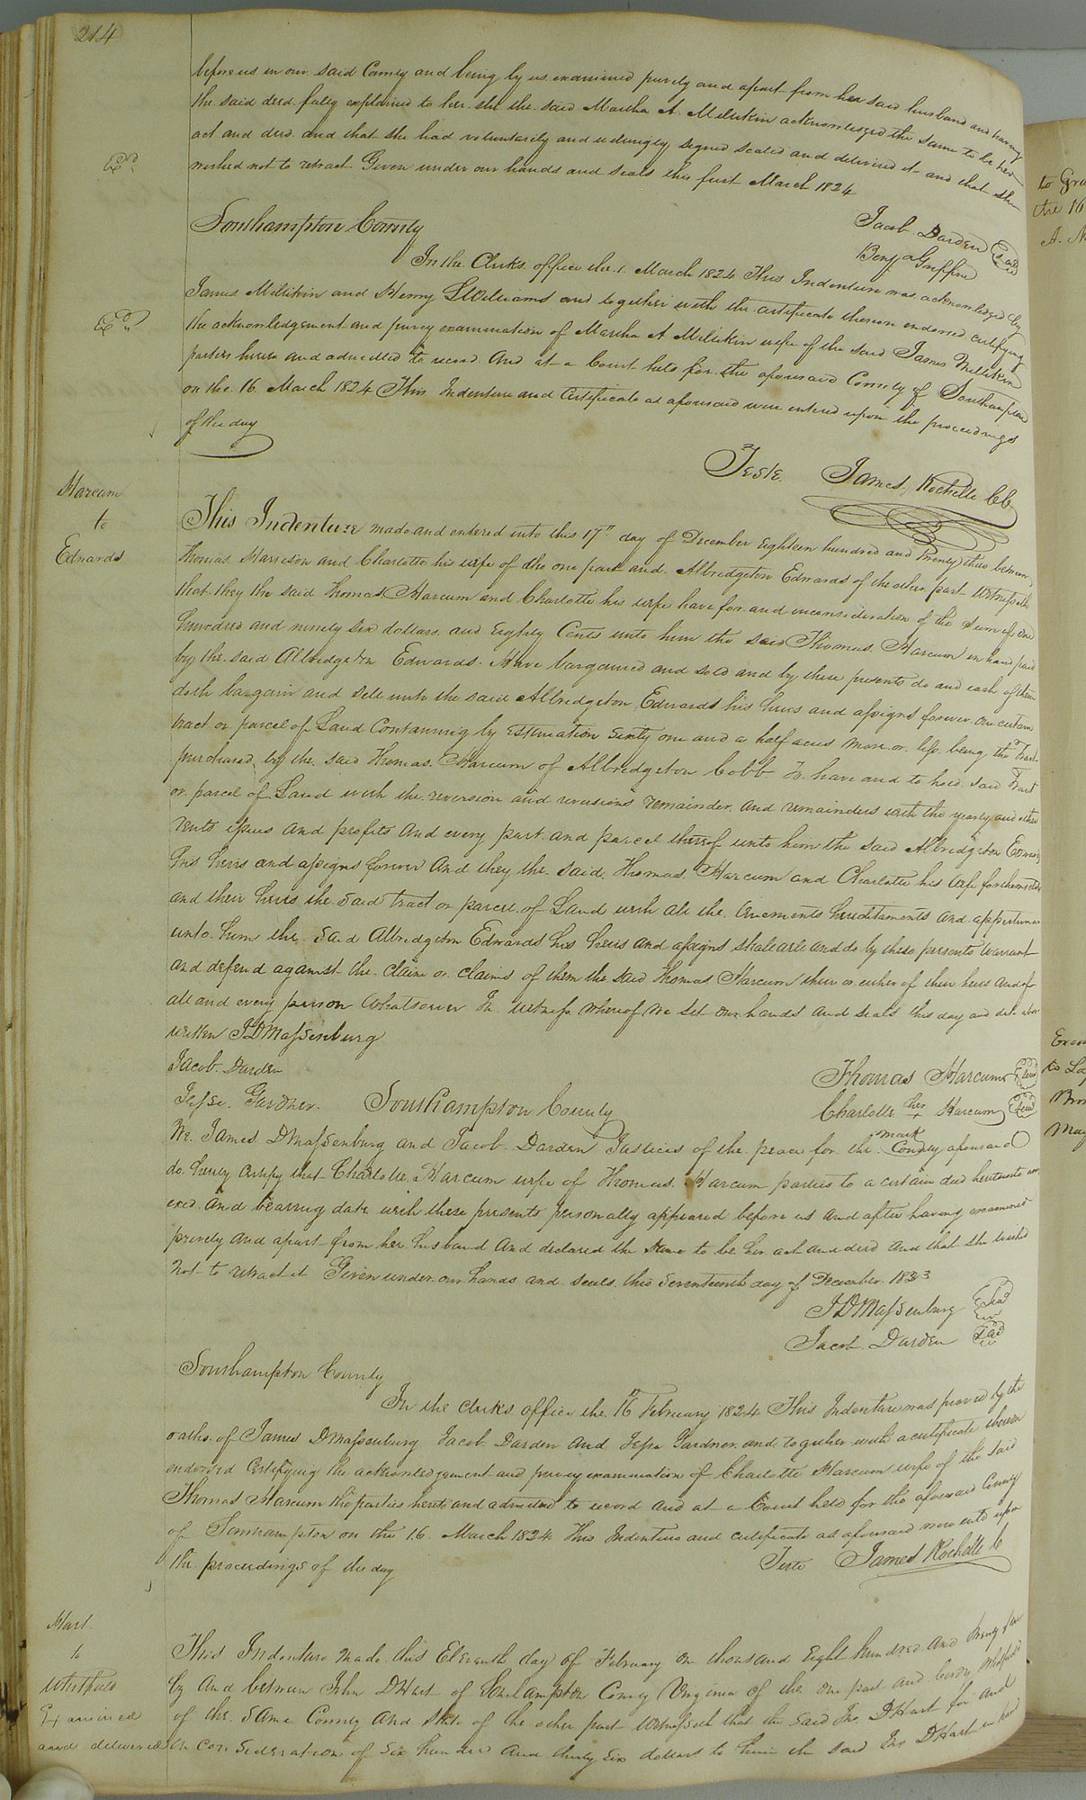 214
before us in our said County and being by us examined privily and apart from her said husband and having
the said deed fully explained to her she the said Martha A. Millikin acknowledged the same to be her
act and deed and that she had voluntarily and willingly signed sealed and delivered it and that she
wished not to retract Given under our hands and seals this first March 1824
Jacob Darden Seal
Benj a Griffin
Southampton County
In the Clerks office the 1 March 1824 This Indenture was acknowledged by
James Millikin and Henry L Williams and together with the certificate thereon endorsed certifying
the acknowledgement and privy examination of Martha A Millikin wife of the said James Millikin
parties hereto and admitted to record And at a Court held for the aforesaid County of Southampton
on the 16 March 1824 This Indenture and Certificate as aforesaid were entered upon the proceedings
of the day
Teste. James Rochelle CC
Harcum
to
Edwards
This Indenture made and entered into this 17" day of December Eighteen hundred and Twenty three between
Thomas Harcum and Charlotte his wife of the one part and Albridgeton Edwards of the other part Witnesseth
that they the said Thomas Harcum and Charlotte his wife have for and in consideration of the sum of one
hundred and ninety six dollars and Eighty Cents unto him the said Thomas Harcum in hand paid
by the said Albridgeton Edwards. Have bargained and sold and by these presents do and each of them
doth bargain and sell unto the said Albridgeton Edwards his heirs and assigns forever one certain
tract or parcel of Land Containing by Estimation Sixty one and a half acres more or less being the Tract
purchased by the said Thomas Harcum of Albridgeton Cobb To have and to hold said Tract
or parcel of Land with the reversion and reversions remainder and remainders with the yearly and other
rents issues and profits and every part and parcel thereof unto him the said Albridgeton Edwards
his heirs and assigns forever And they the said Thomas Harcum and Charlotte his wife for themselves
and their heirs the said tract or parcel of Land with all the tenements hereditaments and appertenances
unto him the said Albridgeton Edwards his heirs and assigns shall and do by these presents warrant
and defend against the claim or claims of them the said Thomas Harcum their or either of their heirs and of
all and every person whatsoever In witness whereof we set our hands and seals this day and date above
written J D Massenburg
Jacob Darden
Jesse Gardner.
Thomas Harcum Seal
Charlotte her Harcum Seal
mark
Southampton County
We James D Massenburg and Jacob Darden Justices of the peace for the County aforesaid
do hereby Certify that Charlotte Harcum wife of Thomas Harcum parties to a certain deed hereunto ann
exed and bearing date with these presents personally appeared before us and after having examined
privily and apart from her husband and declared the same to be her act and deed and that she wished
not to retract it Given under our hands and seals this Seventeenth day of December 1823
J D Massenburg Seal
Jacob Darden Seal
Southampton County
In the clerks office the 16 February 1824 This Indenture was proved by the
oaths of James D Massenburg Jacob Darden and Jesse Gardner and together with a certificate thereon
endorsed Certifying the acknowledgement and privy examination of Charlotte Harcum wife of the said
Thomas Harcum the parties hereto and admitted to record and at a Court held for the aforesaid County
of Southampton on the 16 March 1824 This Indenture and certificate as aforesaid were ente upon
the proceedings of the day
Teste James Rochelle C
Hart
to
Whitfield
Examined
and delivered
This Indenture made this Eleventh day of February one thousand Eight hundred and twenty four
by and between John D Hart of Southampton County Virginia of the one part and
of the same County and State of the other part Witnesseth that the said Jno. D Hart for and
in consideration of six hundred and thirty six dollars to him the said Jno D Hart in hand
to Gra
the 16